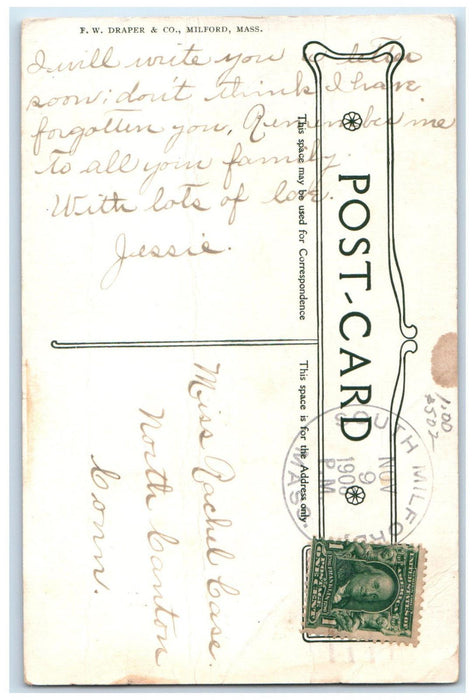 F. W. DRAPER & CO., MILFORD, MASS.
I will write you a letter
soon; don't think I have
forgotten you, Remember me
to all your family.
With lots of love.
Jessie.
POST-CARD
This space may be used for Correspondence
This space is for the Address only
Miss Rachel Case.
North Canton
Conn.
SOUTH MILFORD
NOV
9
1908
P.M
MASS.
1,00